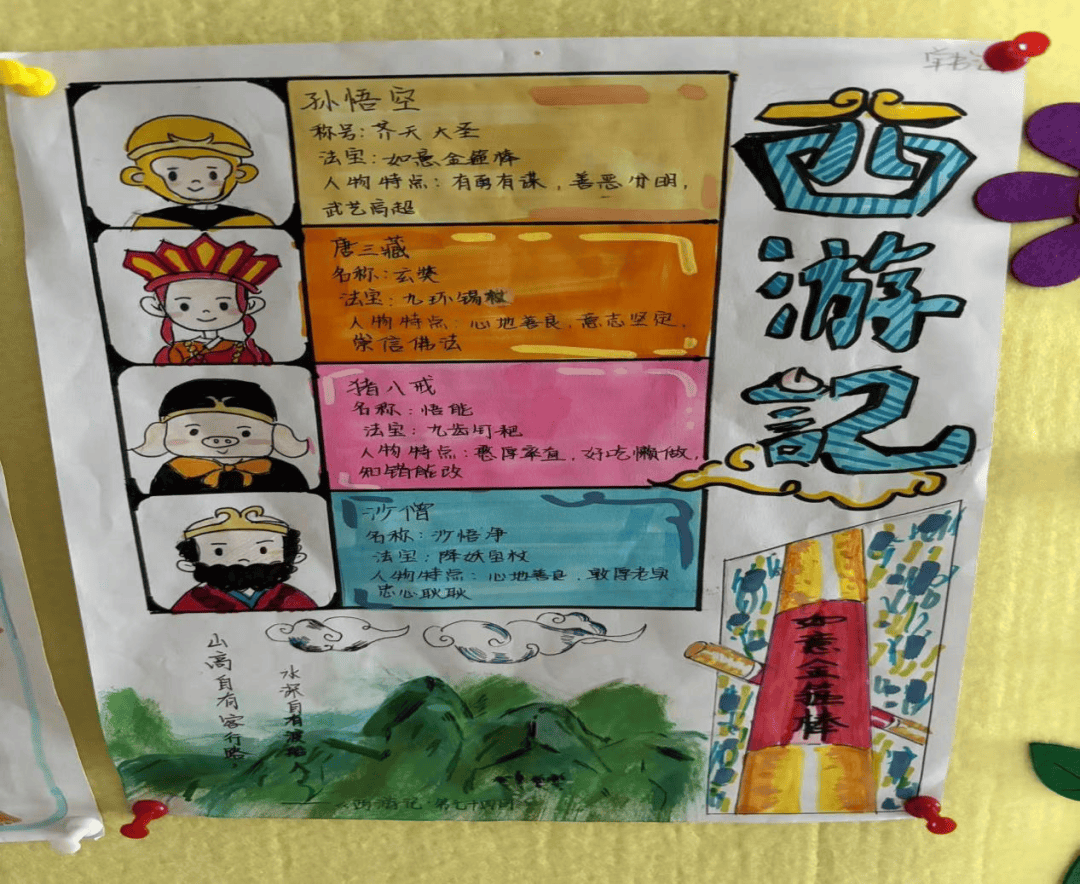 西游記
孙悟空
称号:齐天大圣
法宝:如意金箍棒
人物特点:有勇有谋,善恶分明,
武艺高超
唐三藏
名称:玄奘
法宝:九环锡杖
人物特点:心地善良,意志坚定,
崇信佛法
猪八戒
名称:悟能
法宝:九齿钉耙
人物特点:憨厚率直,好吃懒做,
知错能改
沙僧
名称:沙悟净
法宝:降妖宝杖
人物特点:心地善良,敦厚老实
忠心耿耿
山高自有客行路,
水深自有渡船人
——《西游记·第七十四回》
如意金箍棒